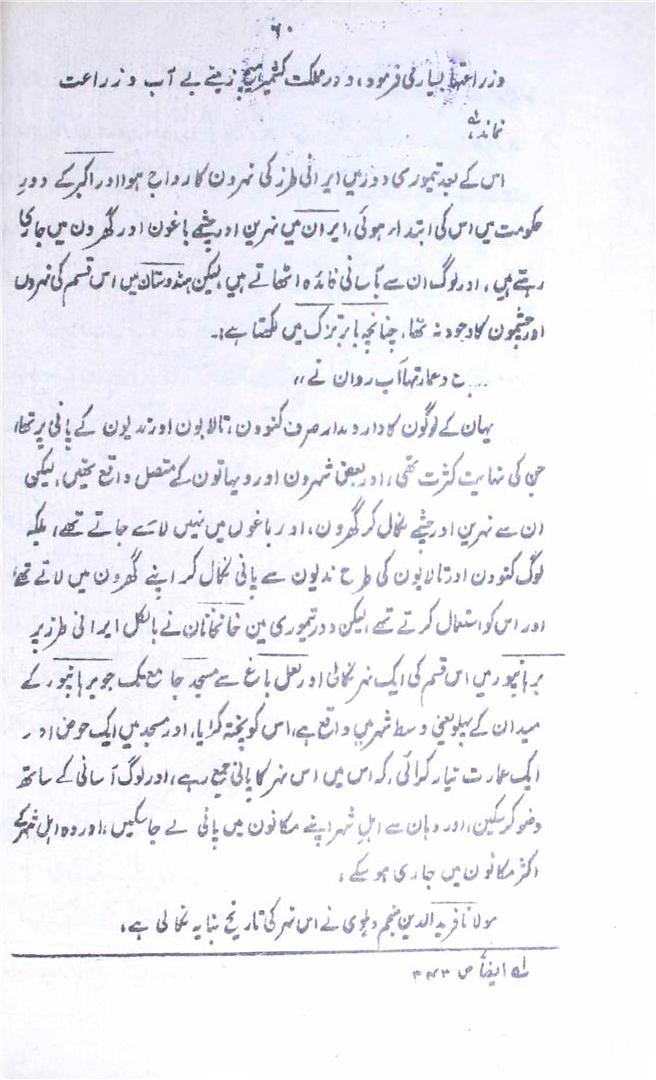 ۶۰
وزراعتہا بسیار می فرمود، و در مملکت کشمیر ہیچ زمینے بے آب و زراعت
نماند،
اس کے بعد تیموری دور میں ایرانی طرز کی نہرون کا رواج ہوا اور اکبر کے دورِ
حکومت میں اس کی ابتدا ہوئی، ایران میں نہرین اور چشمے باغون اور گھرون میں جاری
رہتے ہیں، اور لوگ ان سے بآسانی فائدہ اٹھاتے ہیں، لیکن ہندوستان میں اس قسم کی نہروں
اور چشمون کا وجود نہ تھا، چنانچہ بابر تزک میں لکھتا ہے:۔
و عمارتہا آب روان نے،،
یہان کے لوگون کا دار و مدار صرف کنوون، تالابون اور ندیون کے پانی پر تھا،
جن کی نہایت کثرت تھی، اور بعض شہرون اور دیہاتون کے متصل واقع تھیں، لیکن
ان سے نہرین اور چشمے نکال کر گھرون، اور باغوں میں نہیں لائے جاتے تھے، بلکہ
لوگ کنوون اور تالابون کی طرح ندیون سے پانی نکال کر اپنے گھرون میں لاتے تھے،
اور اس کو استعمال کرتے تھے، لیکن دور تیموری مین خانخانان نے بالکل ایرانی طرز پر
برہانپور میں اس قسم کی ایک نہر نکالی اور لعل باغ سے مسجد جامع تک جو برہانپور کے
میدان کے پہلو یعنی وسط شہر میں واقع ہے، اس کو پختہ کرایا، اور مسجد میں ایک حوض اور
ایک عمارت تیار کرائی، کہ اس میں اس نہر کا پانی جمع رہے، اور لوگ آسانی کے ساتھ
وضو کر سکین، اور وہان سے اہل شہر اپنے مکانون میں پانی لے جا سکیں، اور وہ اہل شہر کے
اکثر مکانون میں جاری ہو سکے،
مولانا فرید الدین منجم دہلوی نے اس نہر کی تاریخ بنا یہ نکالی ہے،
لہ ایضاً ص ۳۴۳